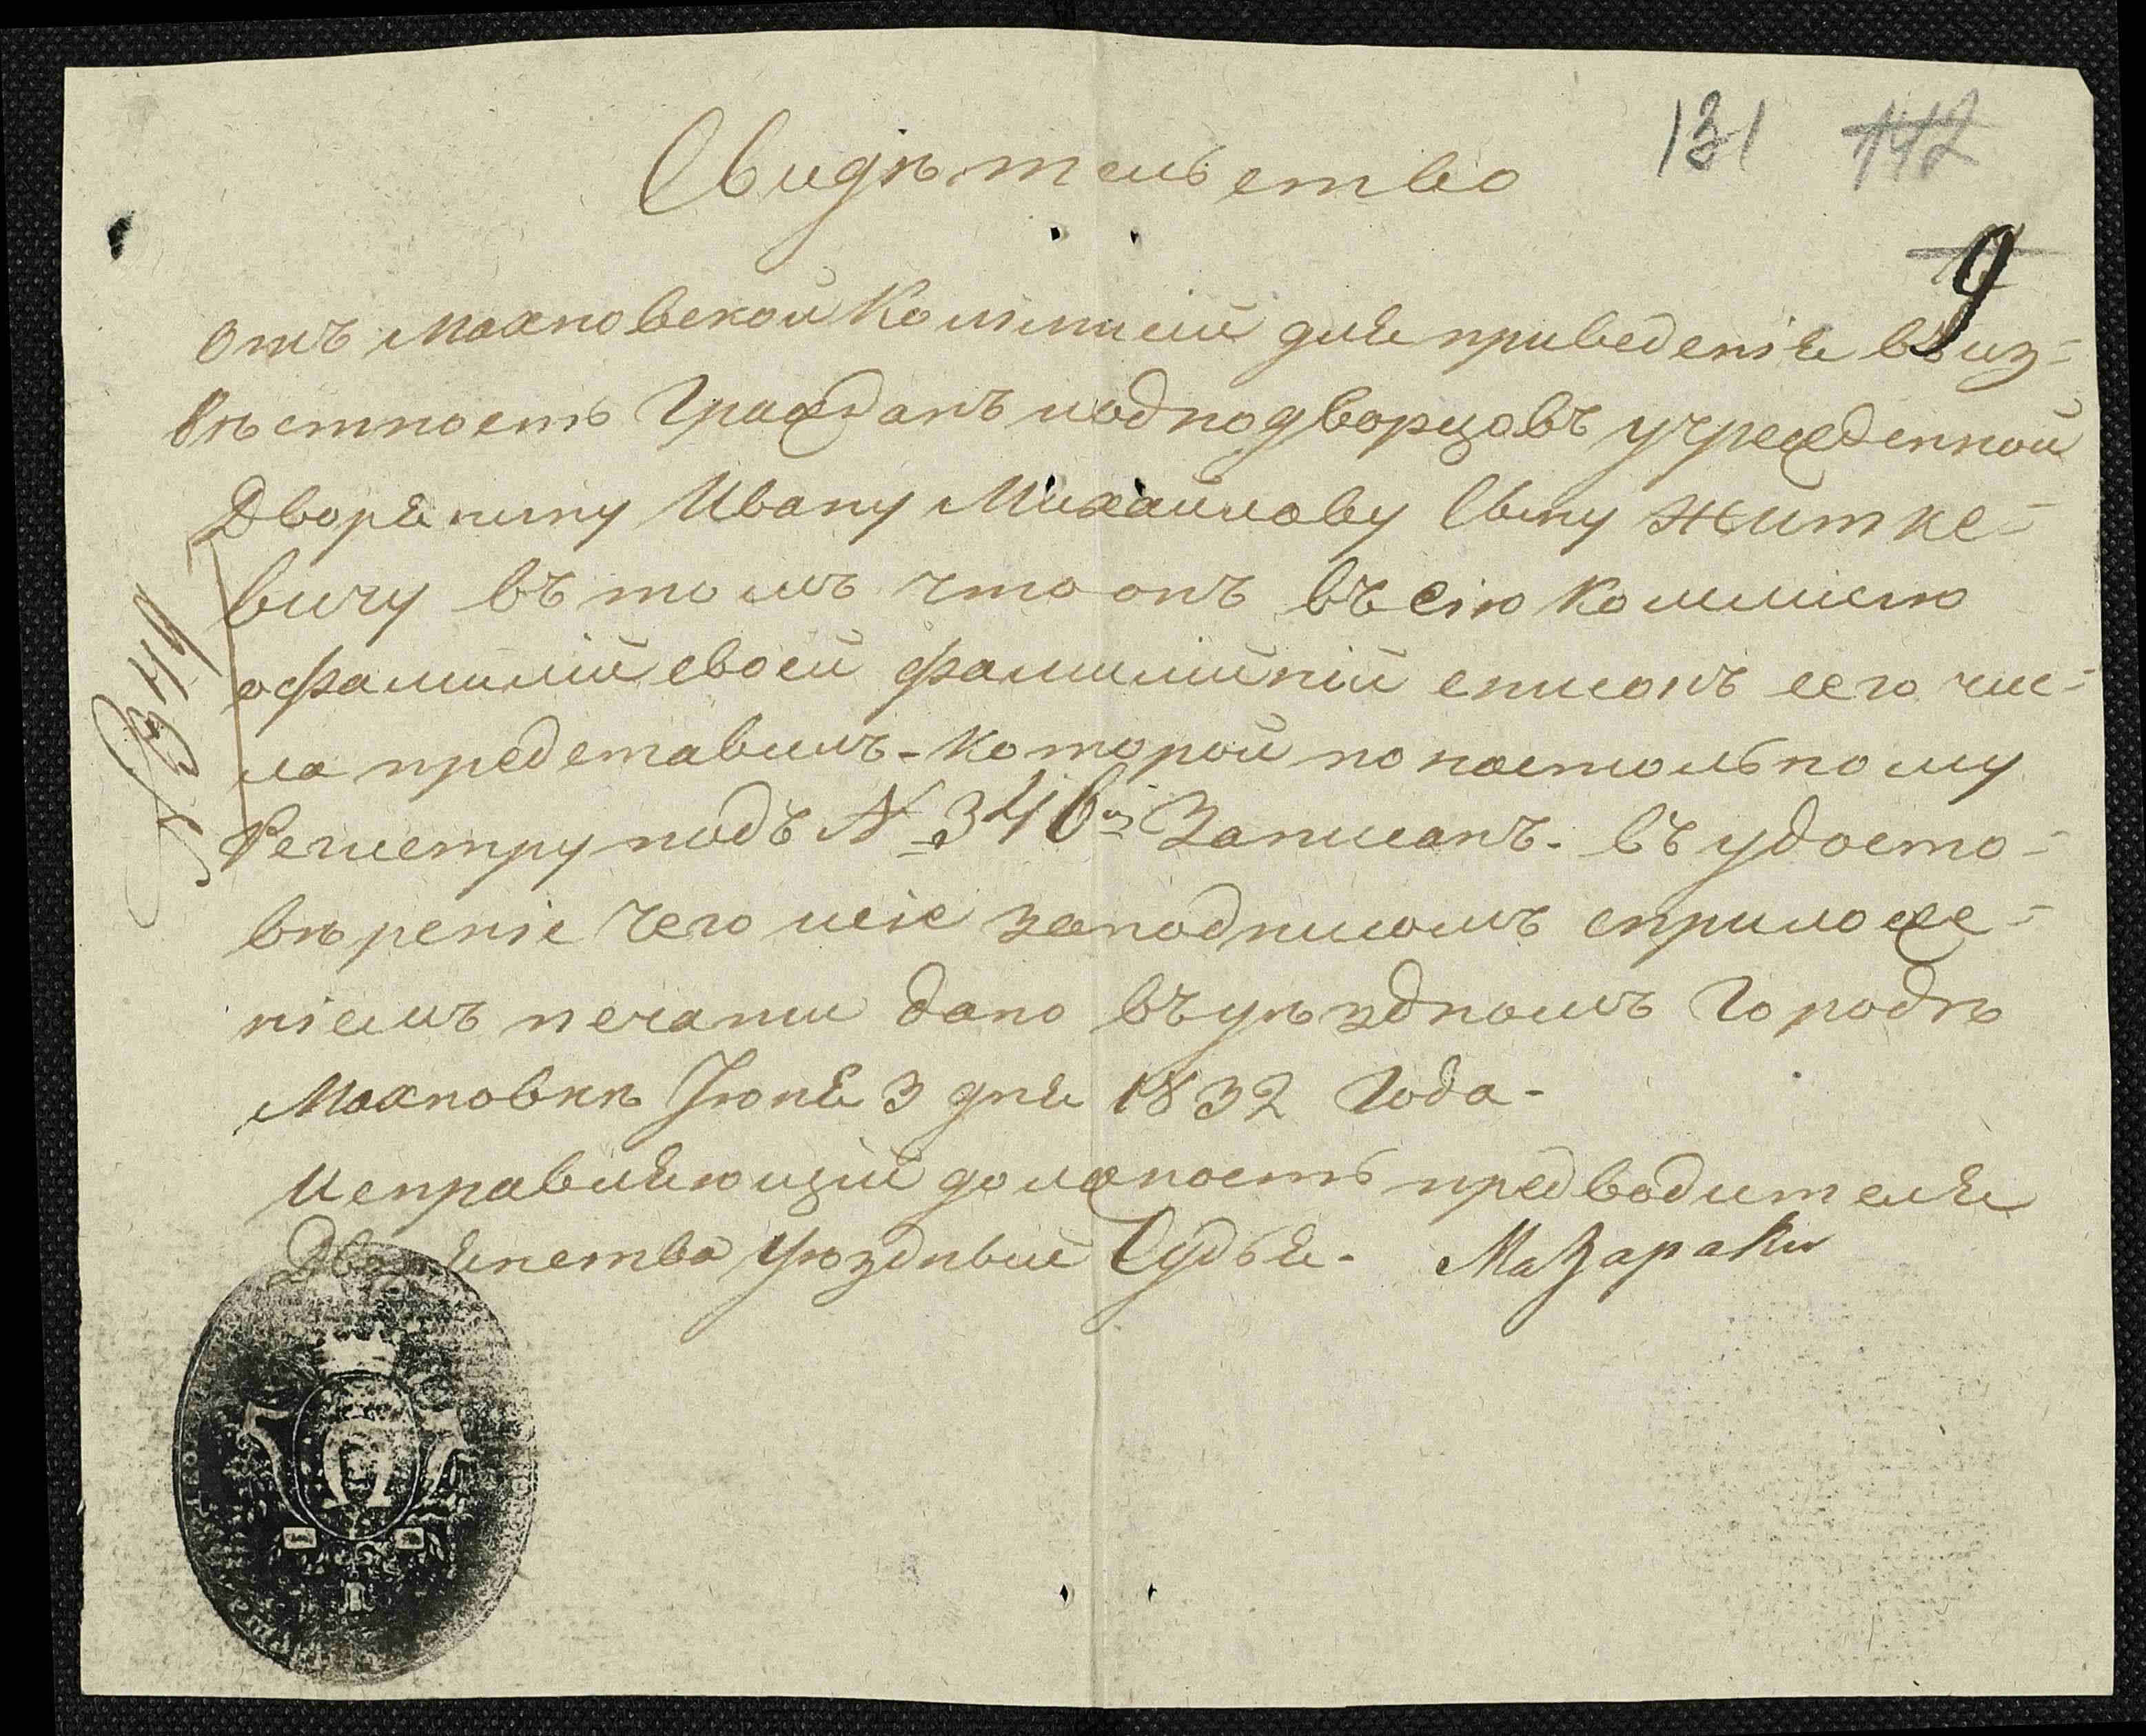 131 142
9
Свидѣтельство
Отъ Махновской Коммисіи для приведенія въ из=
вѣстность Гражданъ иоднодворцовъ учрежденной
Дворянину Ивану Михайлову Сыну Житке=
вичу въ томъ что онъ въ сію Коммисію
офамиліи своей фамилійній списокъ сего чис=
ла представилъ - которой понастольному
Регистру подъ № 346й Записанъ. въ удосто=
вѣреніе чего сіе заподписомъ сприложе=
ніемъ печати дано въ уѣздномъ Городѣ
Махновкѣ Іюня 3 дня 1832 Года -
Исправляющій должность предводителя
Дворянства Уѣздный Судья - Мазараки